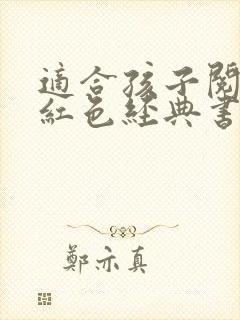 適合孩子閱
紅色經典書
鄭亦真